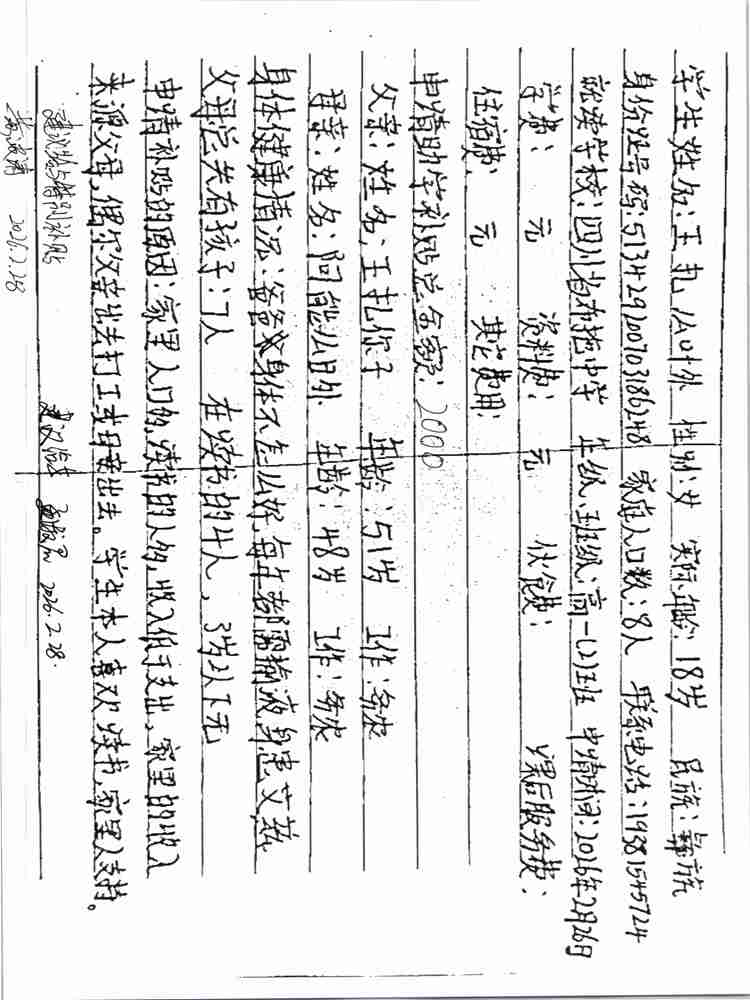 学生姓名:王扎么叶外 性别:女 实际年龄:18岁 民族:彝族
身份证号码:513429200703186248 家庭人口数:8人 联系电话:19381545724
就读学校:四川省布拖中学 年级、班级:高一(2)班 申请时间:2026年2月26日
学费: 元 资料费: 元 伙食费: 课后服务费:
住宿费: 元 其它费用:
申请助学补贴总金额:2000
父亲:姓名:王扎你子 年龄:51岁 工作:务农
母亲:姓名:阿能么日外 年龄:48岁 工作:务农
身体健康情况:爸爸身体不怎么好,每年都需输液,身患艾滋
父母总共有孩子:7人 在读书的4人,3岁以下无
申请补贴的原因:家里人口多,读书的人多,收入低于支出,家里的收入
来源父母,偶尔父亲出去打工或母亲出去。学生本人喜欢读书,家里人支持。
建议给与特别补贴 建议给
2026.2.28 2026.2.28.